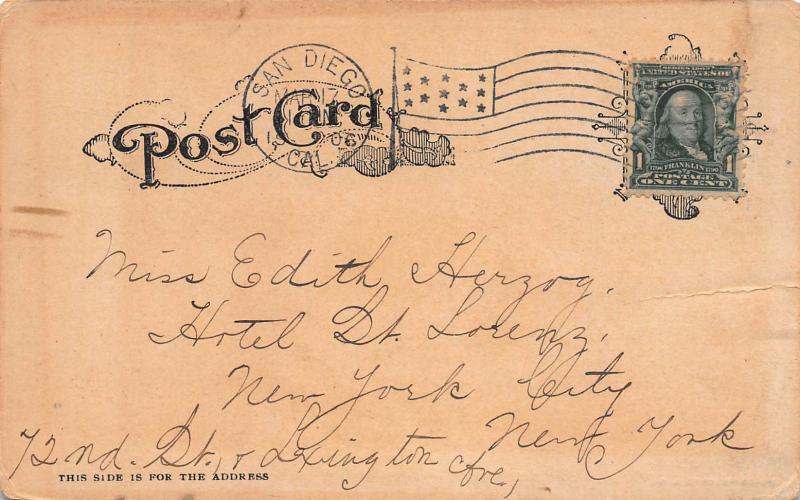 Post Card
SAN DIEGO
CAL.
SERIES 1902
UNITED STATES OF
AMERICA
1706 FRANKLIN 1790
1 POSTAGE 1
ONE CENT
Miss Edith Herzog.
Hotel St. Lorenz,
New York City
New York
72nd. St., & Lexington Ave,
THIS SIDE IS FOR THE ADDRESS